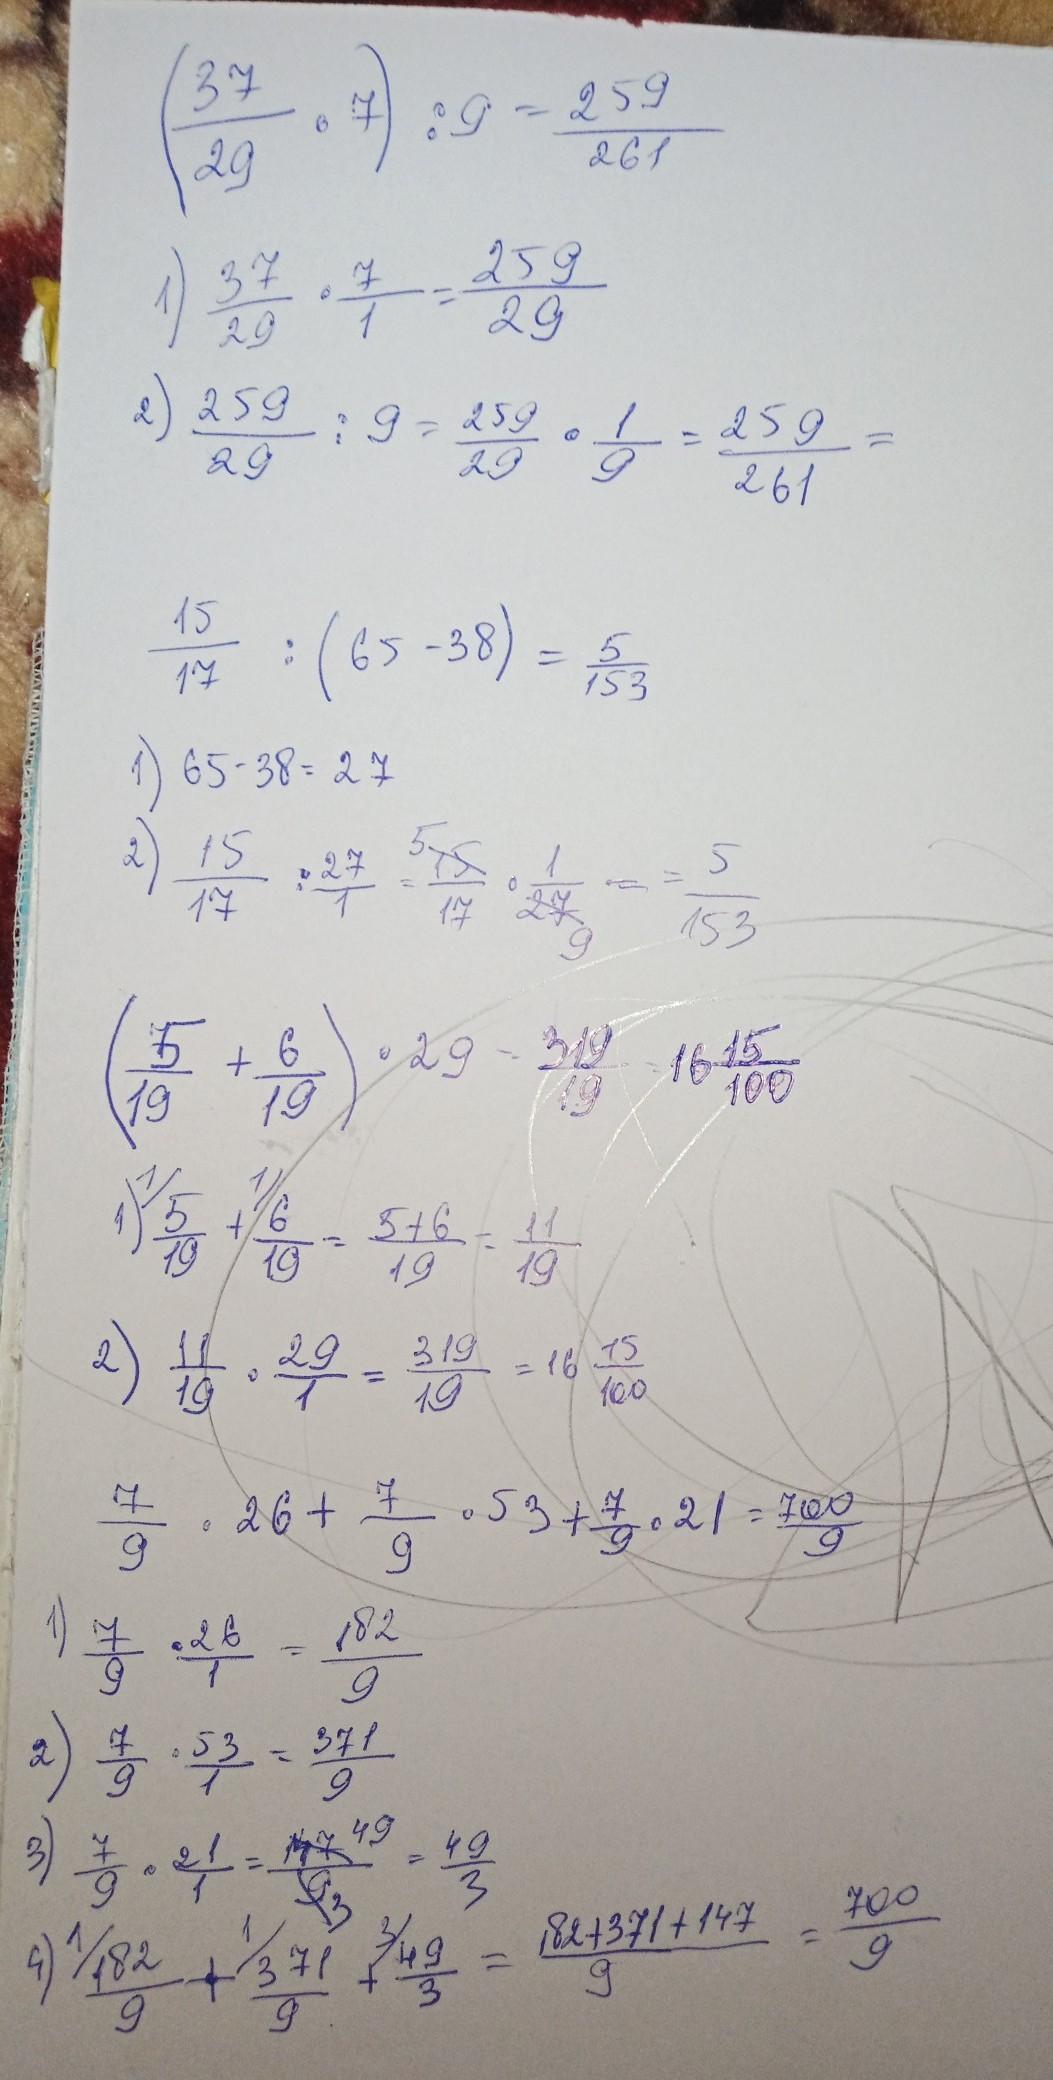 (37/29 · 7) : 9 = 259/261
1) 37/29 · 7/1 = 259/29
2) 259/29 : 9 = 259/29 · 1/9 = 259/261 =
15/17 : (65 - 38) = 5/153
1) 65 - 38 = 27
2) 15/17 : 27/1 = 5 15/17 · 1/27 9 = = 5/153
(5/19 + 6/19) · 29 = 319/19 = 16 15/100
1) 1/ 5/19 + 1/ 6/19 = 5+6/19 = 11/19
2) 11/19 · 29/1 = 319/19 = 16 15/100
7/9 · 26 + 7/9 · 53 + 7/9 · 21 = 700/9
1) 7/9 · 26/1 = 182/9
2) 7/9 · 53/1 = 371/9
3) 7/9 · 21/1 = 147 49/9 3 = 49/3
4) 1/ 182/9 + 1/ 371/9 + 3/ 49/3 = 182+371+147/9 = 700/9